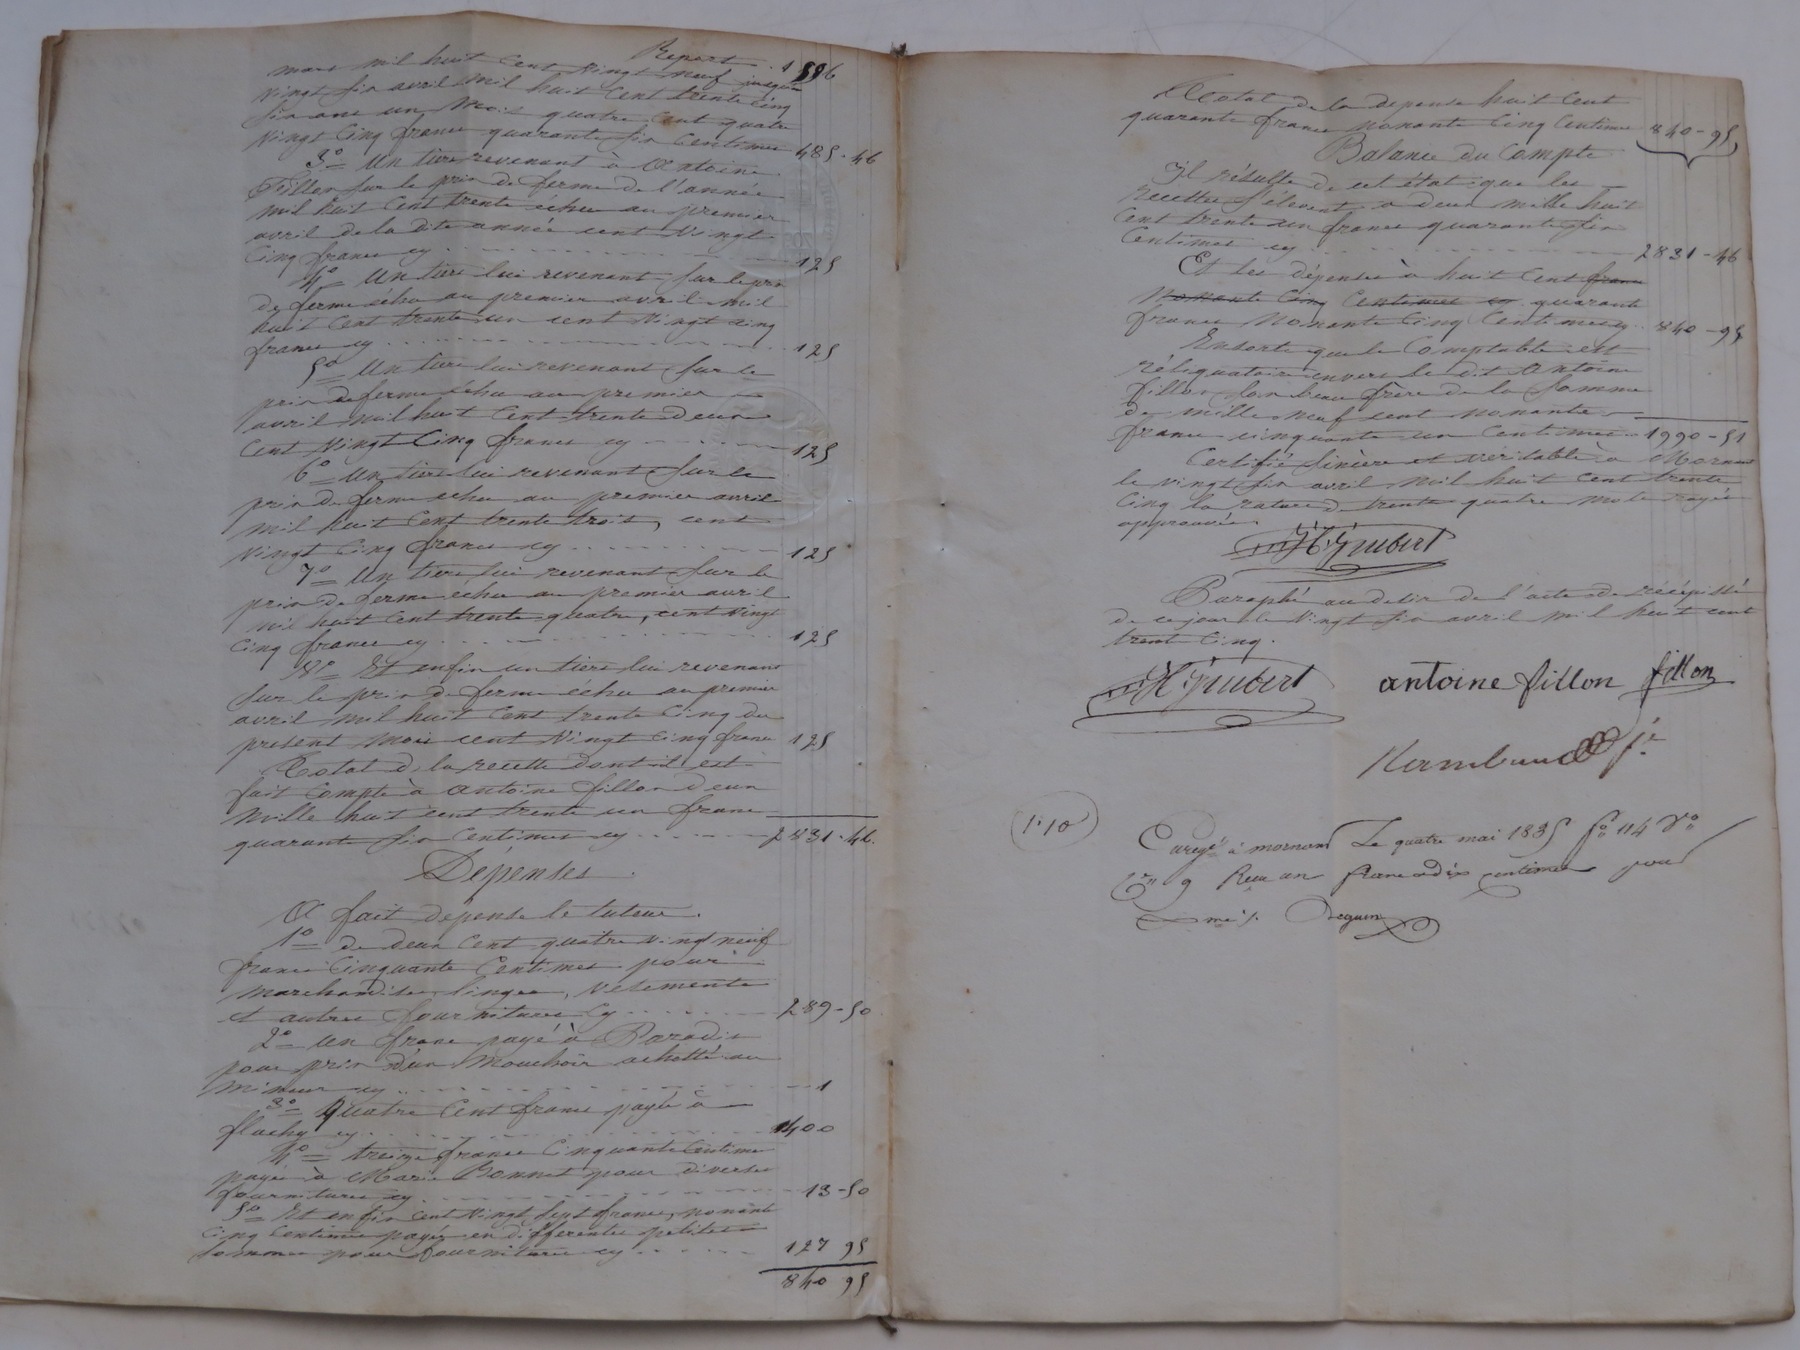 Report . 1596
mars mil huit cent vingt neuf jusqu'au
vingt six avril mil huit cent trente cinq
six ans un mois quatre cent quatre
vingt cinq francs quarante six centimes 485 - 46
3° Un tiers revenant à Antoine
Fillon sur le prix de ferme de l'année
mil huit cent trente échu au premier
avril de la dite année cent vingt
cinq francs cy 125
4° Un tiers lui revenant sur le prix
de ferme échu au premier avril mil
huit cent trente un cent vingt cinq
francs cy 125
5° Un tiers lui revenant sur le
prix de ferme échu au premier
avril mil huit cent trente deux
cent vingt cinq francs cy 125
6° Un tiers lui revenant sur le
prix de ferme échu au premier avril
mil huit cent trente trois, cent
vingt cinq francs cy 125
7° Un tiers lui revenant sur le
prix de ferme échu au premier avril
mil huit cent trente quatre, cent vingt
cinq francs cy 125
8° Et enfin un tiers lui revenant
sur le prix de ferme échu au premier
avril mil huit cent trente cinq du
présent mois cent vingt cinq francs 125
Total de la recette dont il est
fait compte à Antoine fillon deux
mille huit cent trente un francs
quarante six centimes cy 2831 - 46.
Dépenses
A fait dépense le tuteur.
1° de deux cent quatre vingt neuf
francs cinquante centimes pour
marchandises, linges, vetements
et autres fournitures cy 289 - 50
2° un franc payé à Paradis
pour prix d'un mouchoir achetté au
mineur cy 1
3° Quatre cent francs payés à
flachy cy 400
4° treize francs cinquante centimes
payés à Marie Bonnet pour diverses
fournitures cy 13 - 50
5° Et enfin cent vingt sept francs, nonante
cinq centimes payés en differentes petites
sommes pour fournitures cy 127 95
840 95
Total de la depense huit cent
quarante francs nonante cinq centimes 840 - 95
Balance du Compte
Il résulte de cet état que les
recettes s'élevent a deux mille huit
cent trente un francs quarante six
centimes cy 2831 - 46
Et les dépenses à huit cent francs
nonante cinq centimes cy quarante
francs nonante cinq centimes cy 840 - 95
Ensorte que le Comptable est
réliquataire envers le dit Antoine
fillon son beau frère de la somme
de mille neuf cent nonante
francs cinquante un centimes 1990 - 51
Certifié sincère et veritable à Mornant
le vingt six avril mil huit cent trente
cinq la rature de trente quatre mots rayés
approuvée
H. Guibert
Paraphé au desir de l'acte de récépissé
de ce jour le vingt six avril mil huit cent
trente cinq.
H. Guibert antoine fillon fillon
1. 10
Enregé à mornant Le quatre mai 1835 fo 114 vo
Cen 9 Reçu un franc dix centimes pour